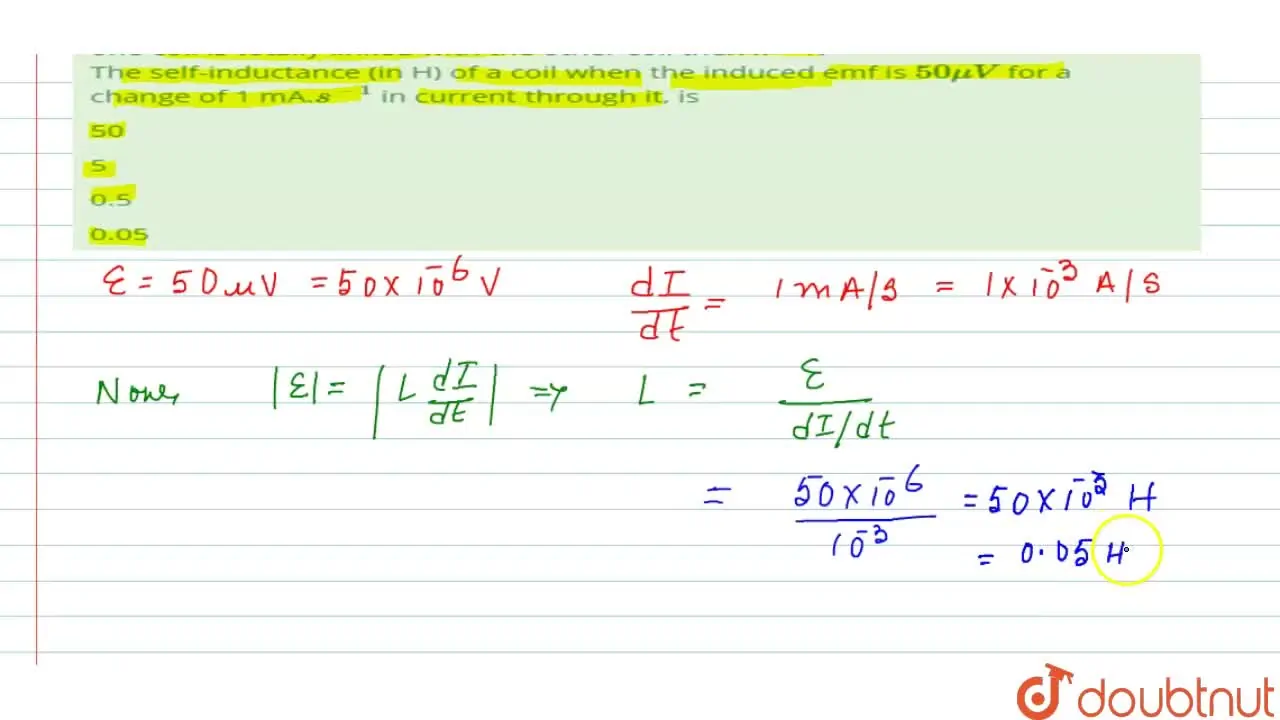 The self-inductance (in H) of a coil when the induced emf is 50μV for a
change of 1 mA.s⁻¹ in current through it, is
50
5
0.5
0.05
ε = 50μV = 50×10⁻⁶ V dI/dt = 1mA/s = 1×10⁻³ A/s
|ε| = |L dI/dt| ⇒ L = ε/(dI/dt)
= 50×10⁻⁶/10⁻³ = 50×10⁻³ H
= 0.05 H
doubtnut